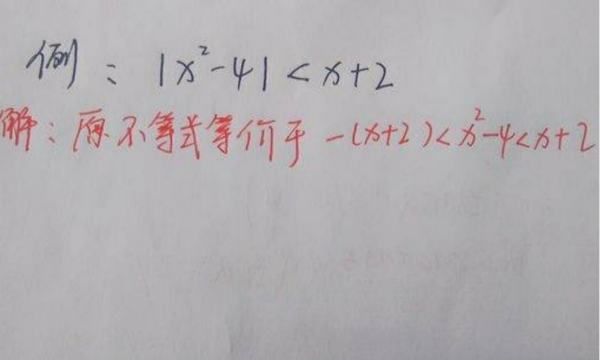 例：|x²-4|<x+2
解：原不等式等价于 -(x+2)<x²-4<x+2